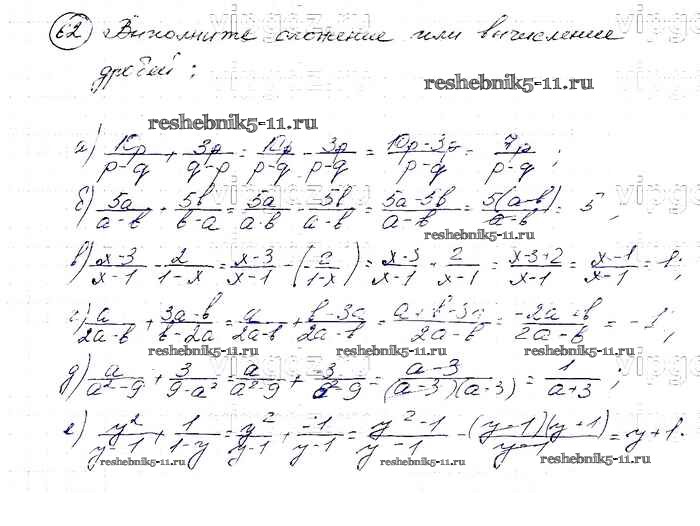 62 Выполните сложение или вычисление
дробей:
reshebnik5-11.ru
reshebnik5-11.ru
а) 10p/(p-q) + 3p/(q-p) = 10p/(p-q) - 3p/(p-q) = (10p-3p)/(p-q) = 7p/(p-q);
б) 5a/(a-b) + 5b/(b-a) = 5a/(a-b) - 5b/(a-b) = (5a-5b)/(a-b) = 5(a-b)/(a-b) = 5;
reshebnik5-11.ru
в) (x-3)/(x-1) - 2/(1-x) = (x-3)/(x-1) - (-2/(1-x)) = (x-3)/(x-1) + 2/(x-1) = (x-3+2)/(x-1) = (x-1)/(x-1) = 1;
г) a/(2a-b) + (3a-b)/(b-2a) = a/(2a-b) + (b-3a)/(2a-b) = (a+b-3a)/(2a-b) = (-2a+b)/(2a-b) = -1;
reshebnik5-11.ru reshebnik5-11.ru
д) a/(a²-9) + 3/(9-a²) = a/(a²-9) + -3/(a²-9) = (a-3)/((a-3)(a+3)) = 1/(a+3);
е) y²/(y-1) + 1/(1-y) = y²/(y-1) + -1/(y-1) = (y²-1)/(y-1) = (y-1)(y+1)/(y-1) = y+1.
reshebnik5-11.ru reshebnik5-11.ru